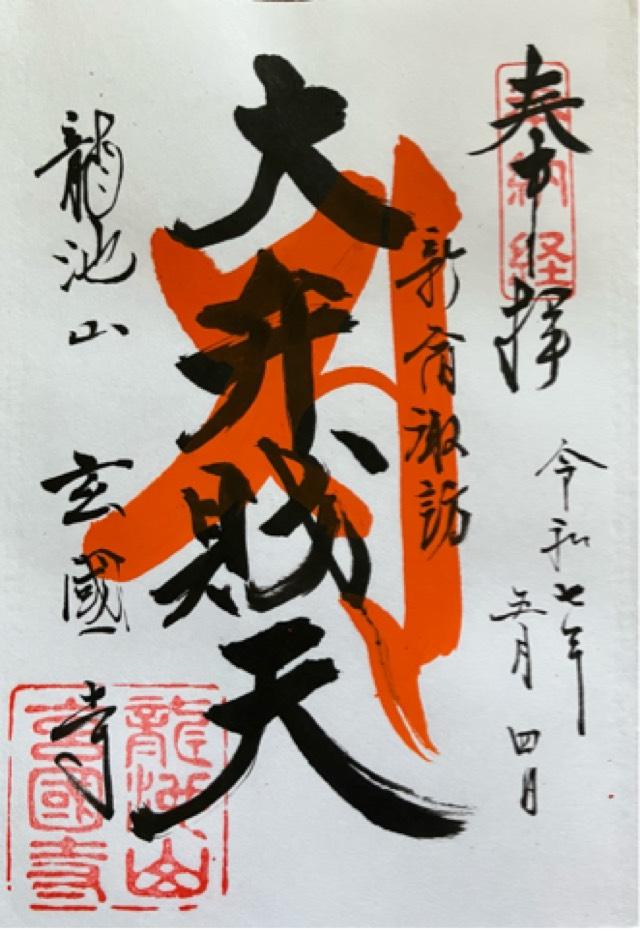 奉拝
奉納経
令和七年
五月四日
新宿諏訪
大弁財天
龍池山 玄國寺
龍池山
玄國寺